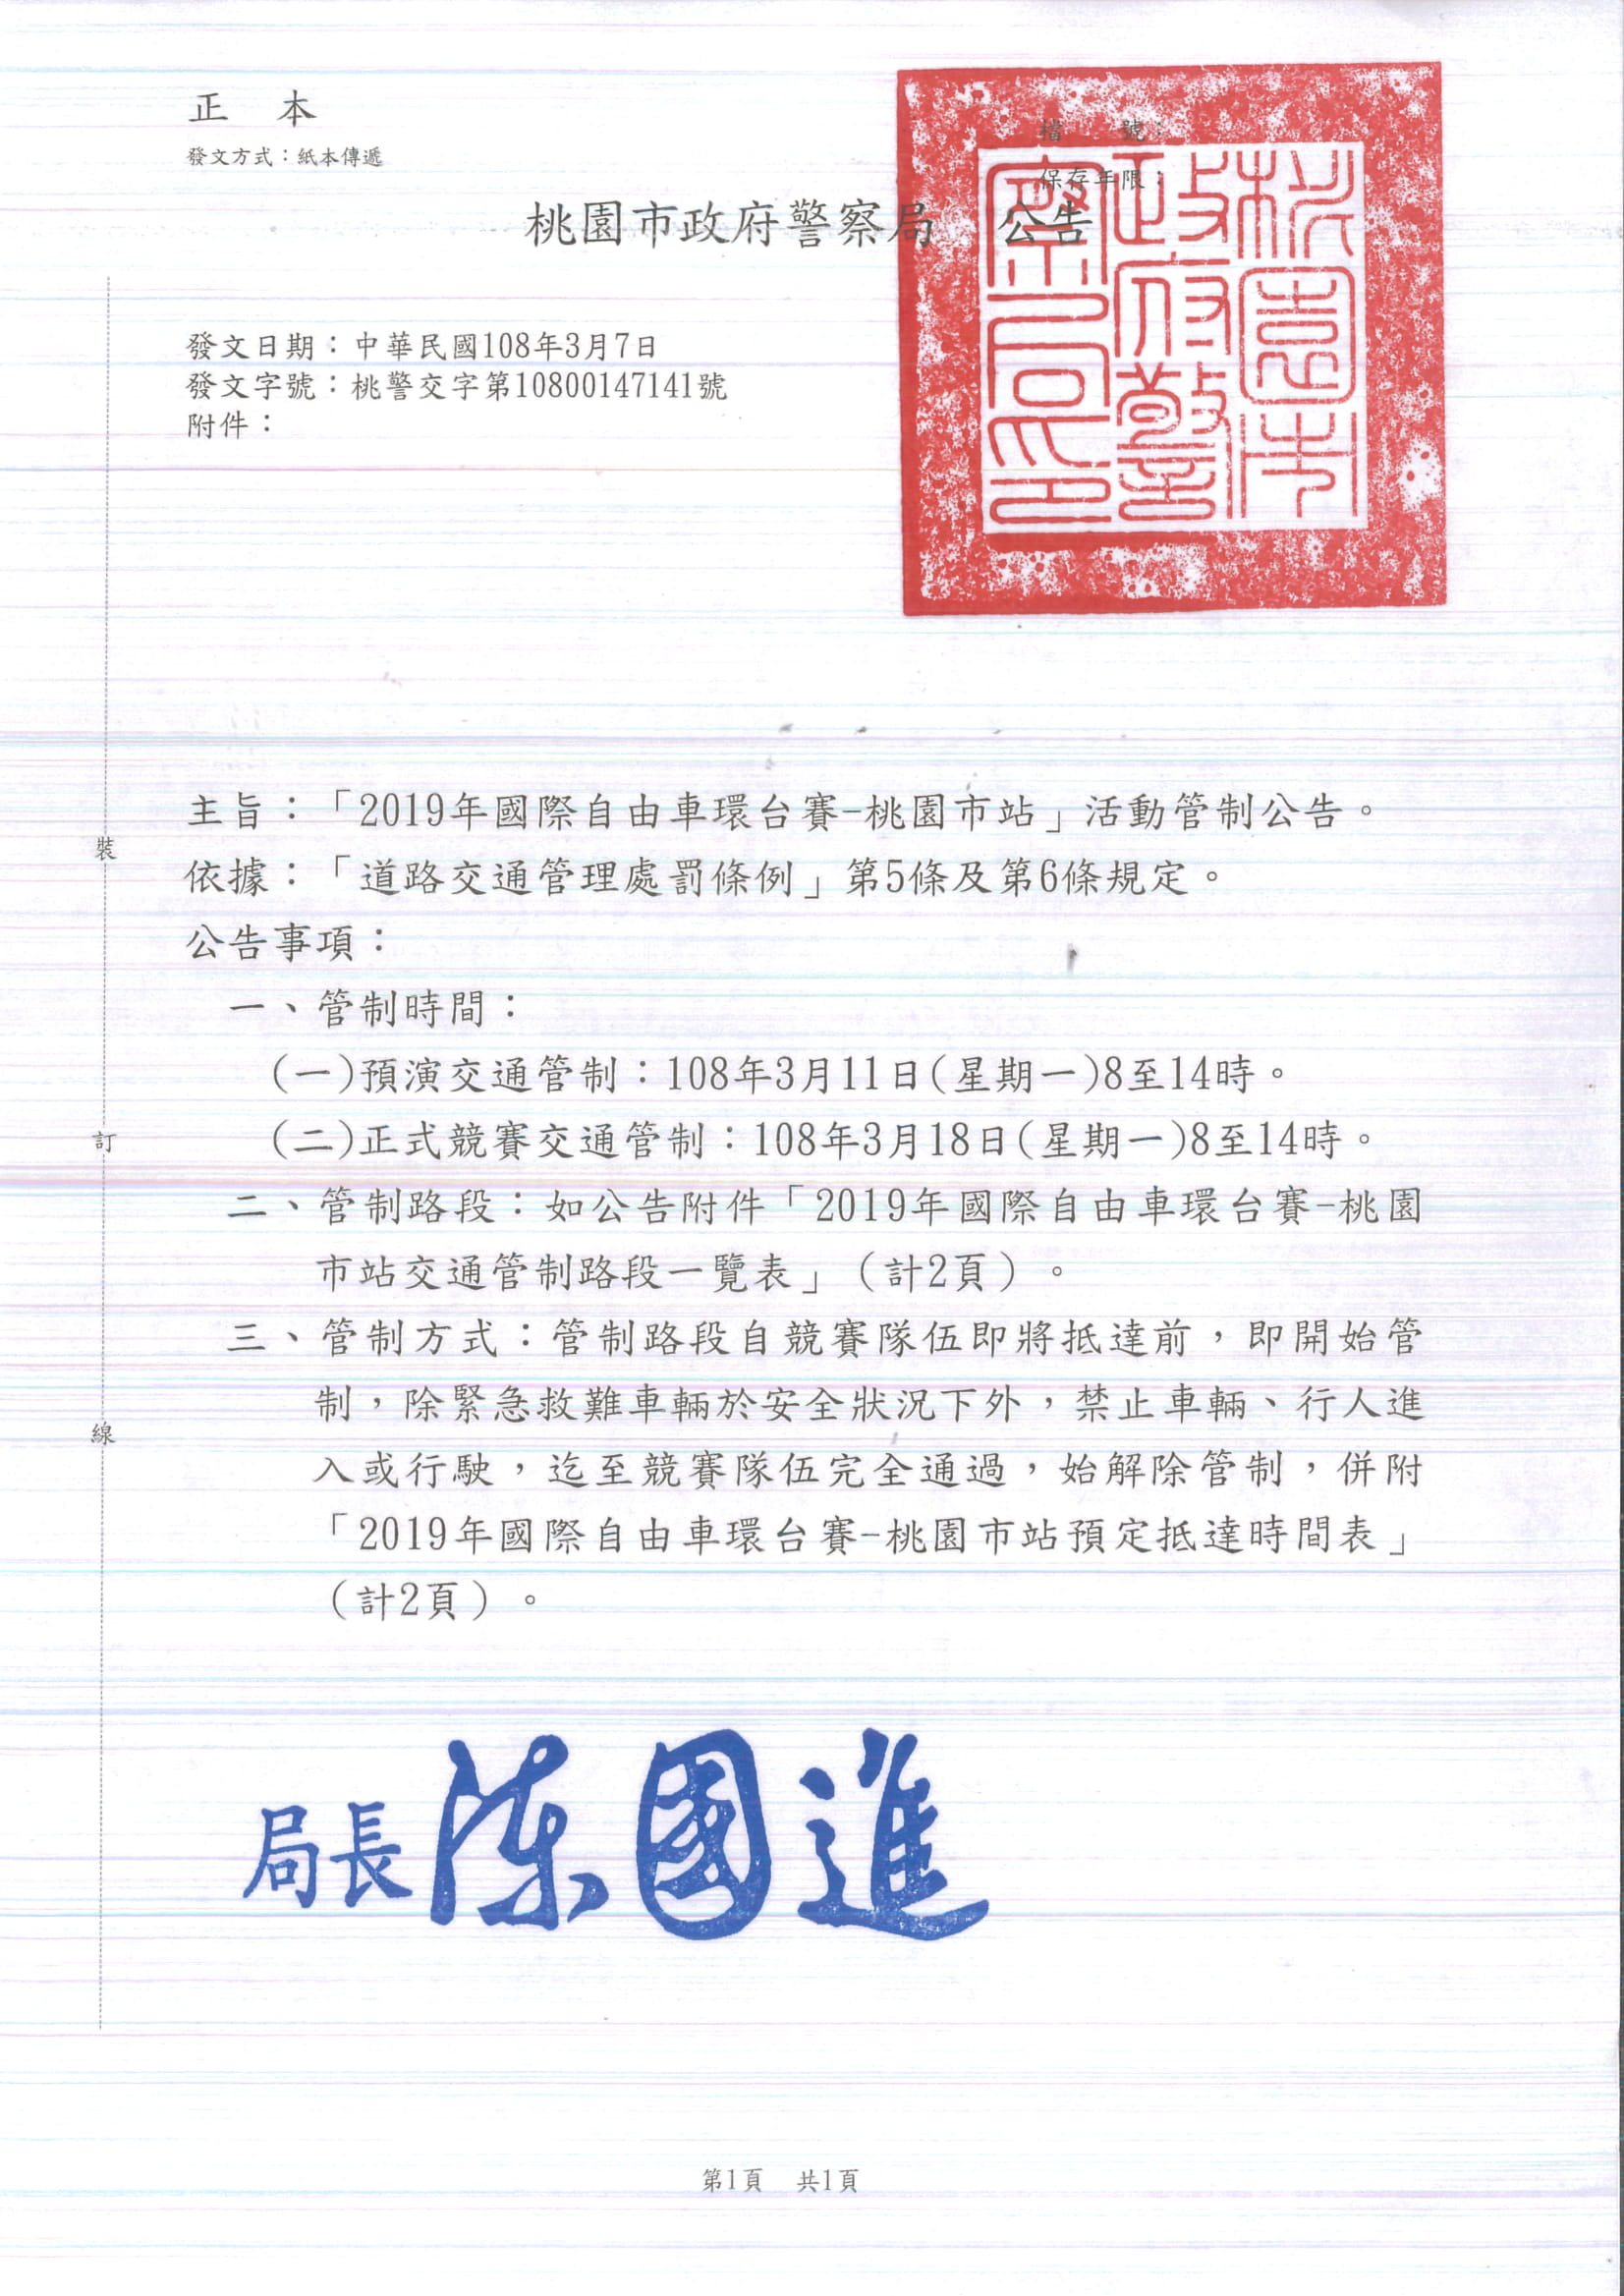 正　本
發文方式：紙本傳遞
檔　　號：
保存年限：
桃園市政府警察局　公告
桃園市
政府警
察局印
發文日期：中華民國108年3月7日
發文字號：桃警交字第10800147141號
附件：
主旨：「2019年國際自由車環台賽-桃園市站」活動管制公告。
依據：「道路交通管理處罰條例」第5條及第6條規定。
公告事項：
一、管制時間：
(一)預演交通管制：108年3月11日(星期一)8至14時。
(二)正式競賽交通管制：108年3月18日(星期一)8至14時。
二、管制路段：如公告附件「2019年國際自由車環台賽-桃園
市站交通管制路段一覽表」（計2頁）。
三、管制方式：管制路段自競賽隊伍即將抵達前，即開始管
制，除緊急救難車輛於安全狀況下外，禁止車輛、行人進
入或行駛，迄至競賽隊伍完全通過，始解除管制，併附
「2019年國際自由車環台賽-桃園市站預定抵達時間表」
（計2頁）。
裝
訂
線
局長陳國進
第1頁　共1頁